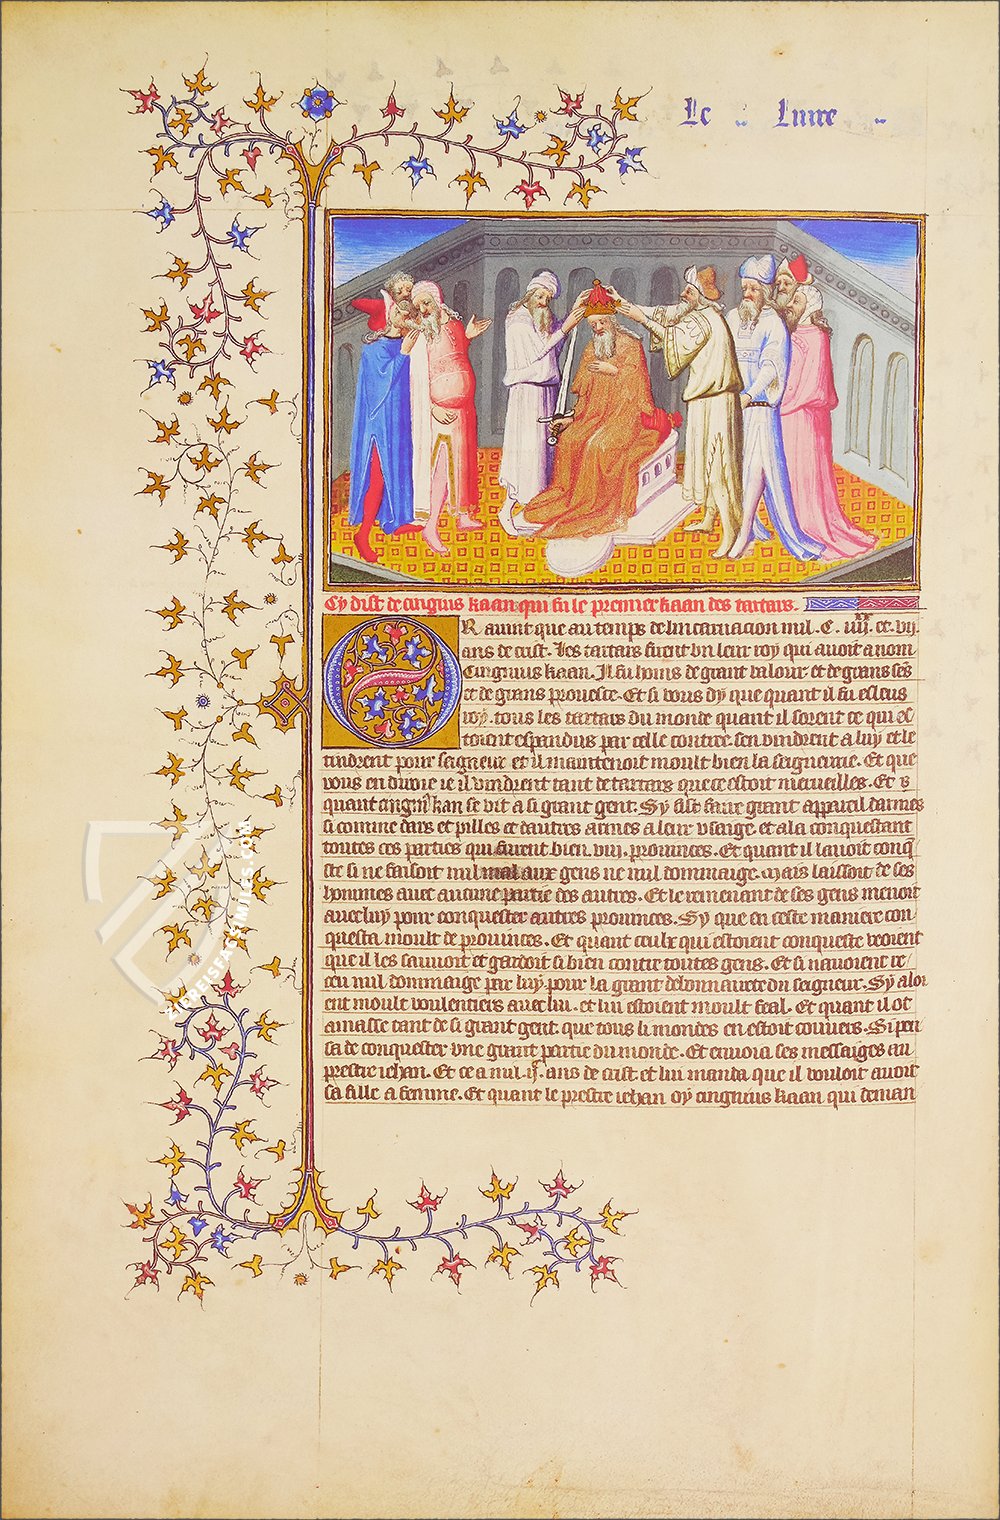 Le Livre
Cy dist de cinguis kaan qui fu le premier kaan des tartars.
OR auint que au temps de lincarnacion mil. C. iiij. et. vij.
ans de crist. Les tartars firent vn leur roy qui auoit a nom
Cinguius kaan. Il fu homs de grant valour. et de grans sens
et de grans prouesce. Et si vous dy que quant il fu esleus
roy. tous les tartars du monde quant il sorent ce qui es
toient espandus par celle contree. sen vindrent a luy et le
tindrent pour seigneur et il maintenoit moult bien la seigneurie. Et que
vous en diroie ie il vindrent tant de tartars que ce estoit merueilles. Et
quant cinguis kan se vit a si grant gent. Sy fist faire grant appareil darmes
si comme dars et pilles et dautres armes a leur vsaige. et ala conquestant
toutes ces parties qui furent bien. viij. prouinces. Et quant il lauoit conq
ste si ne faisoit nul mal aux gens ne nul dommaige. Mais laissoit de ses
hommes auec aucune partie des autres. Et le remenant de ses gens menoit
auec luy pour conquester autres prouinces. Sy que en ceste maniere con
questa moult de prouinces. Et quant ceulx qui estoient conqueste veoient
que il les sauuoit et gardoit si bien contre toutes gens. Et si nauoient re
ceu nul dommaige par luy pour la grant debonnairete du seigneur. Sy alor
ent moult voulentiers auec lui. et lui estoient moult feal. Et quant il ot
amasse tant de si grant gent. que tous li mondes en estoit couuers. Si pen
sa de conquester vne grant partie du monde. Et enuoia ses messaiges au
prestre iehan. Et ce a mil. ijc. ans de crist. et lui manda que il vouloit auoir
sa fille a femme. Et quant le prestre iehan oy cinguius kaan qui deman
ZIEREISFACSIMILES.COM